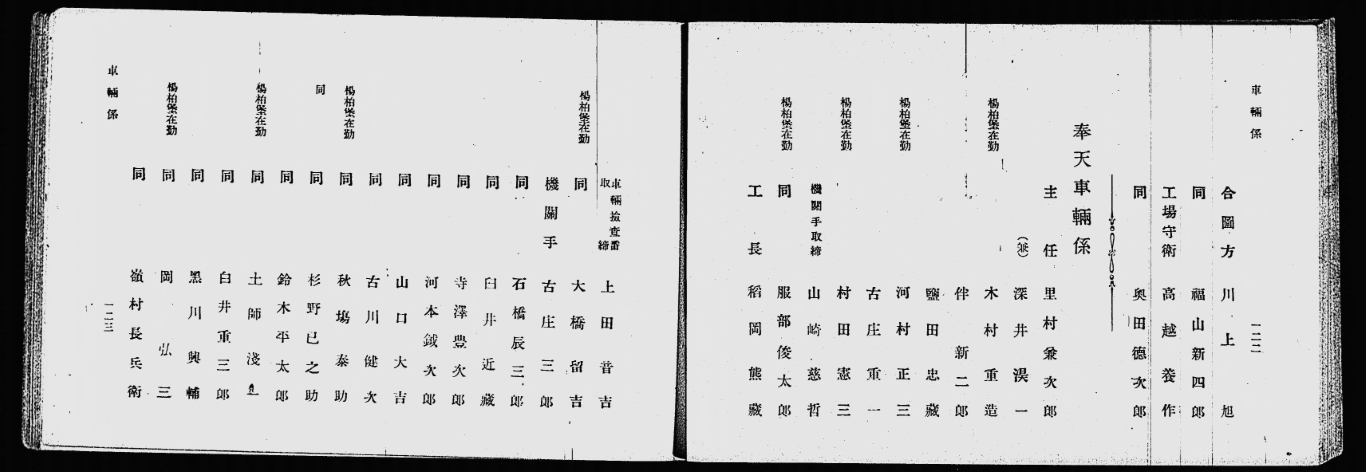 車輛係
一二二
合圖方 川上旭
同 福山新四郎
工場守衛 高越養作
同 奥田德次郎
奉天車輛係
主任 里村兼次郎
(兼) 深井淏一
楊柏堡在勤 木村重造
伴新二郎
鹽田忠藏
楊柏堡在勤 河村正三
古庄重一
楊柏堡在勤 村田憲三
機關手取締 山崎慈哲
楊柏堡在勤 同 服部俊太郎
工長 稻岡熊藏
車輛撿查番取締 上田音吉
楊柏堡在勤 同 大橋留吉
機關手 古庄三郎
同 石橋辰三郎
同 臼井近藏
同 寺澤豊次郎
同 河本鉞次郎
同 山口大吉
同 古川健次
楊柏堡在勤 同 秋塲泰助
同 同 杉野巳之助
同 鈴木平太郎
楊柏堡在勤 同 土師淺
同 臼井重三郎
同 黑川興輔
楊柏堡在勤 同 岡弘三
同 嶺村長兵衛
車輛係
一二三